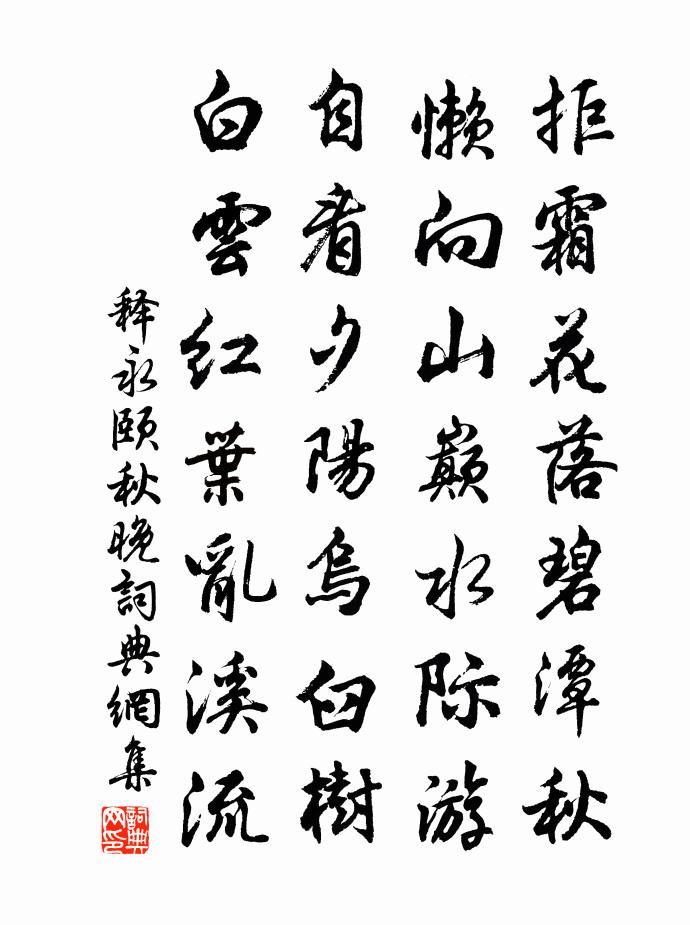 拒霜花落碧潭秋
懶向山巔水际游
自看夕陽烏臼樹
白雲紅葉亂溪流
释永颐秋晚詞典網集
詞典网印